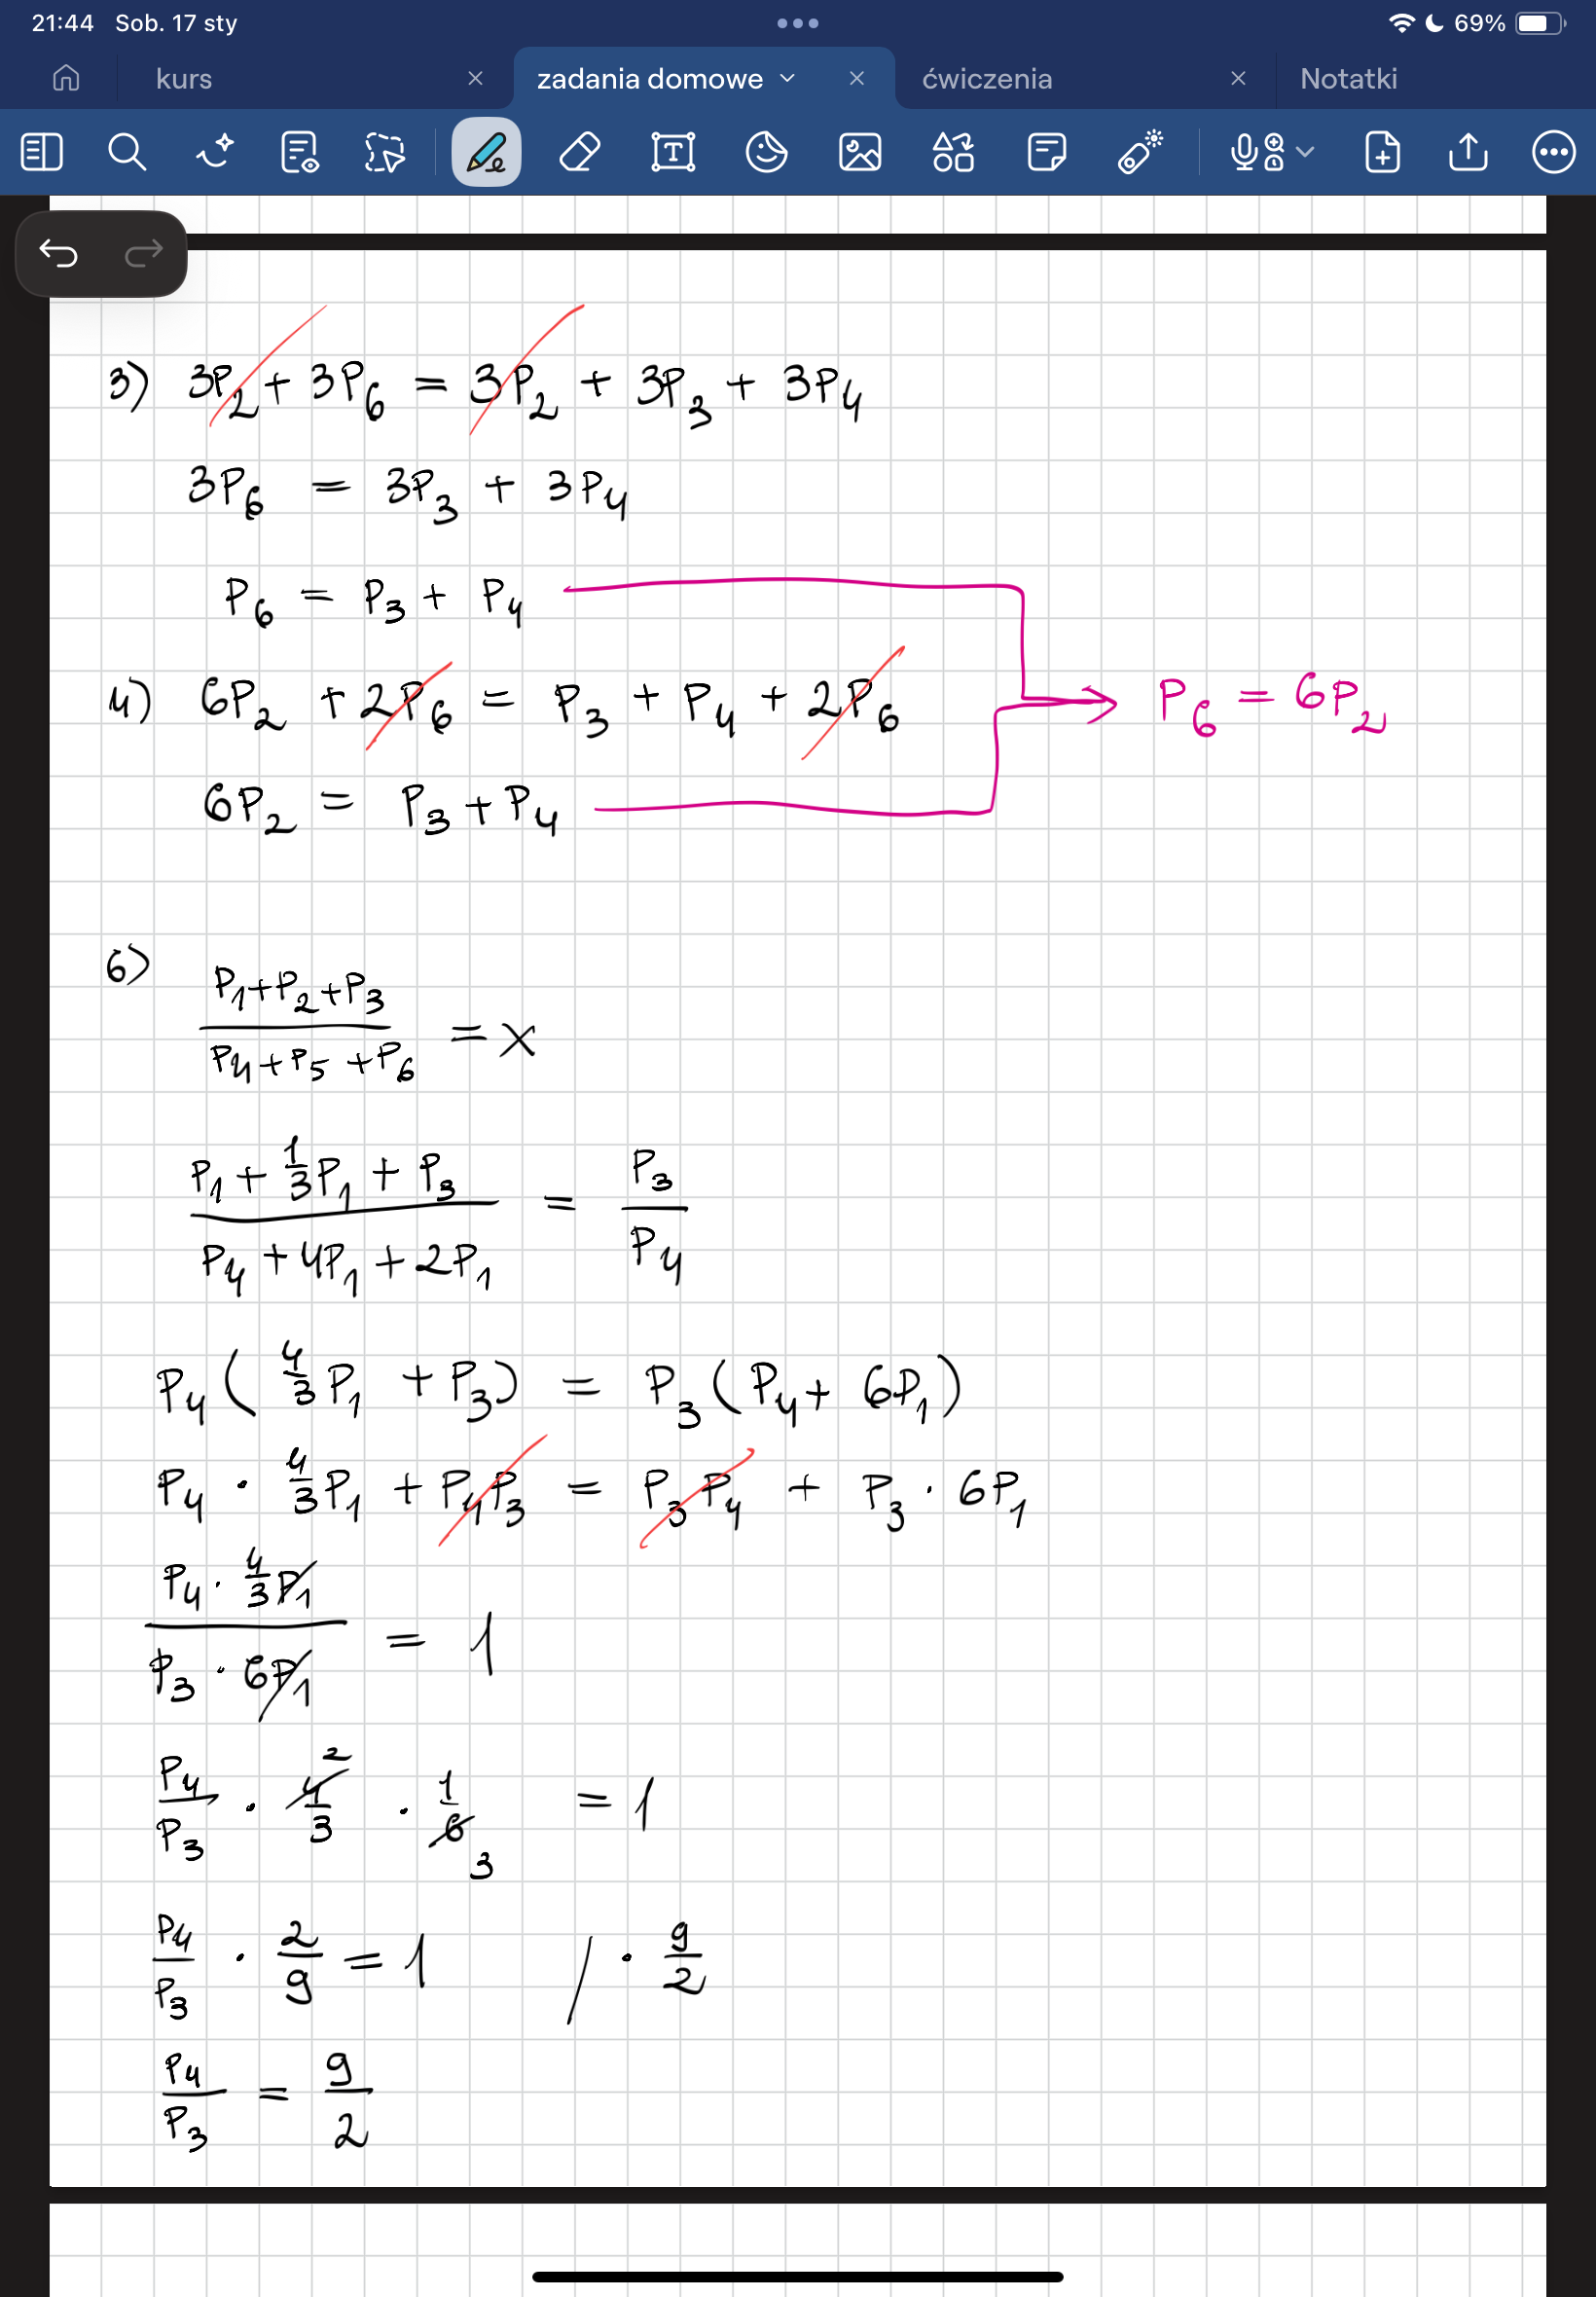 21:44 Sob. 17 sty 69%
kurs zadania domowe ćwiczenia Notatki
3) 3P₂ + 3P₆ = 3P₂ + 3P₃ + 3P₄
3P₆ = 3P₃ + 3P₄
P₆ = P₃ + P₄
4) 6P₂ + 2P₆ = P₃ + P₄ + 2P₆ → P₆ = 6P₂
6P₂ = P₃ + P₄
6) (P₁+P₂+P₃)/(P₄+P₅+P₆) = x
(P₁ + 1/3 P₁ + P₃)/(P₄ + 4P₁ + 2P₁) = P₃/P₄
P₄ (4/3 P₁ + P₃) = P₃ (P₄ + 6P₁)
P₄ · 4/3 P₁ + P₄P₃ = P₃P₄ + P₃ · 6P₁
(P₄ · 4/3 P₁)/(P₃ · 6P₁) = 1
P₄/P₃ · 4/3 2 · 1/6 3 = 1
P₄/P₃ · 2/9 = 1 / · 9/2
P₄/P₃ = 9/2